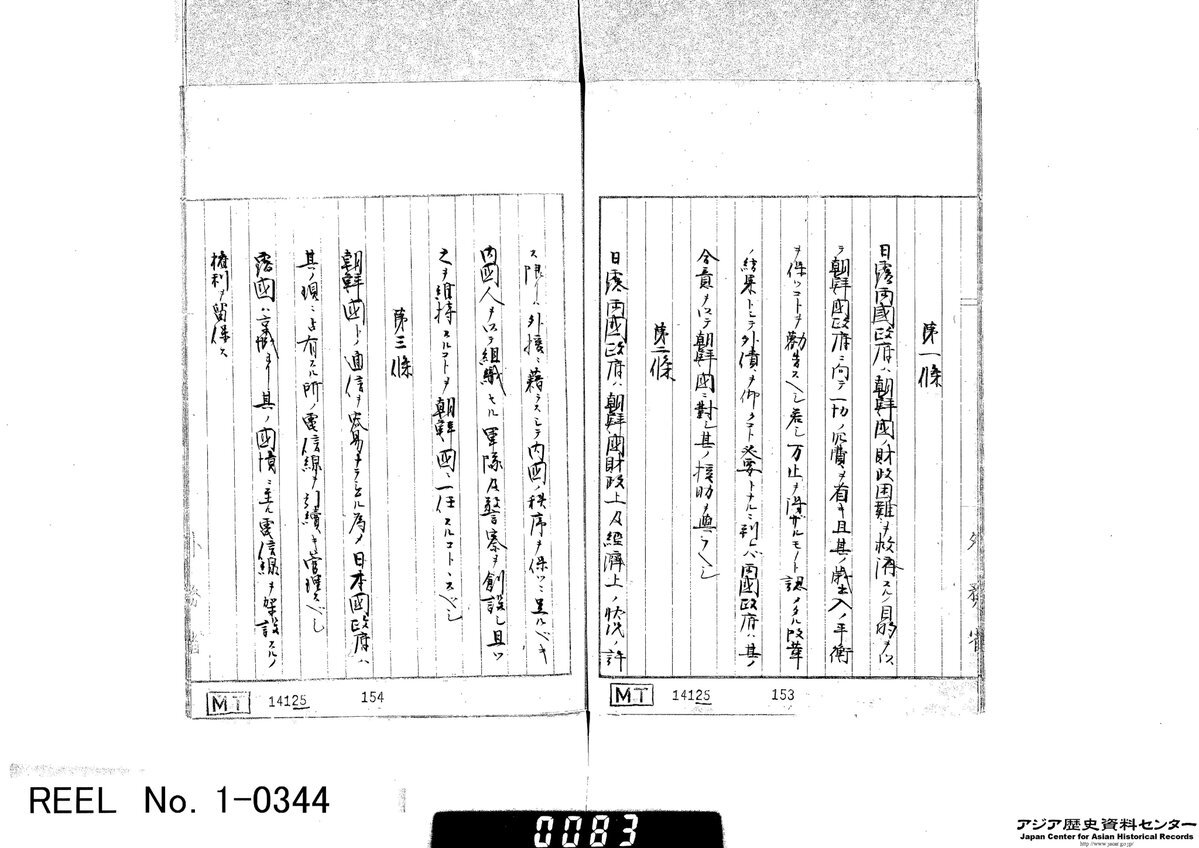 第一條
日露兩國政府ハ朝鮮國ノ財政困難ヲ救濟スルノ目的ヲ以
テ朝鮮國政府ニ向テ一切ノ冗費ヲ省キ且其ノ歳出入ノ平衡
ヲ保ツコトヲ勸告スヘシ若シ万止ヲ得ザルモノト認メタル改革
ノ結果トシテ外債ヲ仰クコト必要トナルニ到レバ兩國政府ハ其ノ
合意ヲ以テ朝鮮國ニ對シ其ノ援助ヲ與フベシ
第二條
日露兩國政府ハ朝鮮國財政上及經濟上ノ狀況ノ許
ス限リハ外援ニ藉ラズシテ内國ノ秩序ヲ保ツニ足ルベキ
内國人ヲ以テ組織セル軍隊及警察ヲ創設シ且ツ
之ヲ維持スルコトヲ朝鮮國ニ一任スルコトヽスベシ
第三條
朝鮮國トノ通信ヲ容易ナラシムル爲メ日本國政府ハ
其ノ現ニ占有スル所ノ電信線ヲ引續キ管理スベシ
露國ハ京城ヨリ其ノ國境ニ至ル電信線ヲ架設スルノ
權利ヲ留保ス
外務省
外務省
MT 14125 154
MT 14125 153
REEL No. 1-0344
0083
アジア歴史資料センター
Japan Center for Asian Historical Records
http://www.jacar.go.jp/